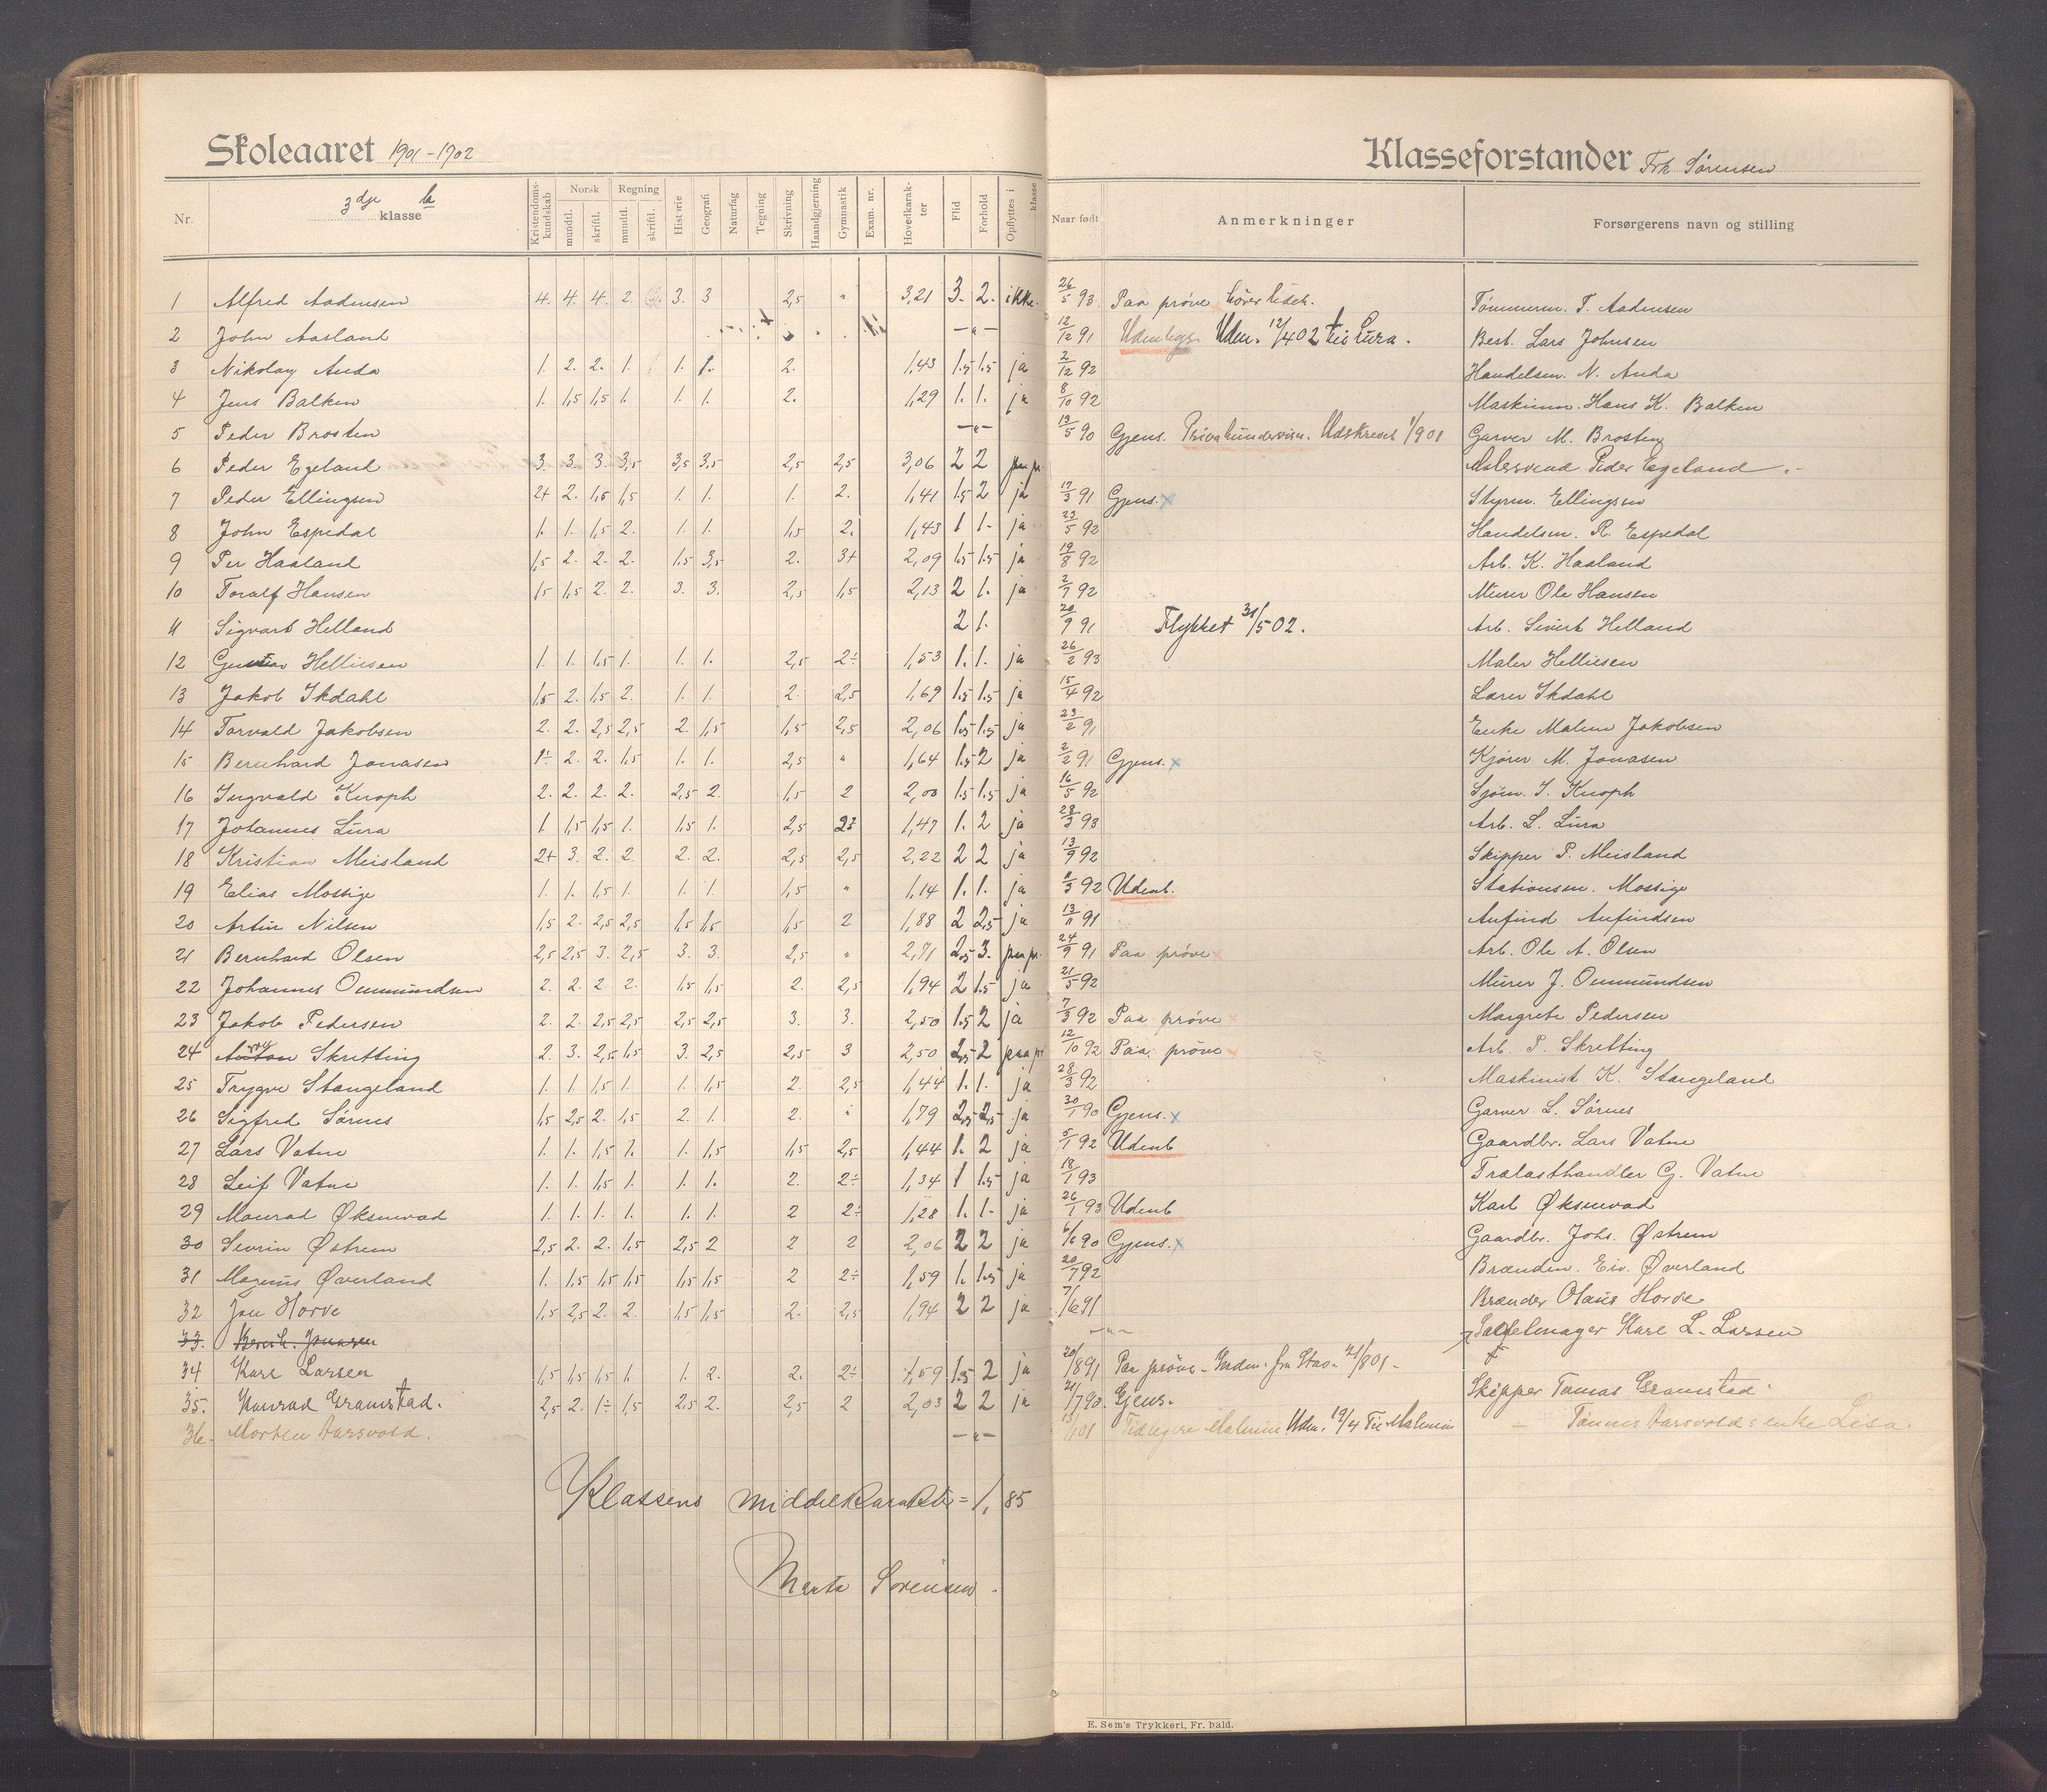 Skoleaaret 1901-1902
Nr.
3dje b
klasse
Kristendoms-
kundskab
Norsk
mundtl.
skriftl.
Regning
mundtl.
skriftl.
Historie
Geografi
Naturfag
Tegning
Skrivning
Haandgjerning
Gymnastik
Exam. nr.
Hovedkarak-
ter
Flid
Forhold
Opflyttes i
klasse
1 Alfred Aadnesen 4. 4. 4. 2. 3. 3 2,5 " 3,21 3. 2. ikke.
2 John Aasland -"-
3 Nikolay Auda 1. 2. 2. 1. 1. 1. 2. 1,43 1.5 1.5 ja
4 Jens Balken 1. 1,5 1,5 1. 1. 1. 2. 1,29 1. 1. ja
5 Peder Brosten -"-
6 Peder Egeland 3. 3. 3. 3,5 3,5 3,5 2,5 2,5 3,06 2 2 paa pr.
7 Peder Ellingsen 2+ 2. 1,5 1,5 1. 1. 1. 2. 1,41 1.5 2 ja
8 John Espedal 1. 1. 1,5 2. 1. 1. 1,5 2. 1,43 1 1. ja
9 Per Haaland 1,5 2. 2. 2. 1.5 3,5 2. 3+ 2,09 1.5 1.5 ja
10 Toralf Hansen 1,5 1,5 2. 2. 3. 3. 2,5 1,5 2,13 2 1. ja
11 Sigvart Helland 2 1.
12 Gustav Helliesen 1. 1. 1,5 1. 1. 1. 2,5 2÷ 1,53 1. 1. ja
13 Jakob Ikdahl 1,5 2. 1,5 2. 1. 1. 2. 2,5 1,69 1.5 1.5 ja
14 Torvald Jakobsen 2. 2. 2,5 2,5 2. 1,5 1,5 2,5 2,06 1.5 1.5 ja
15 Bernhard Jonasen 1÷ 2. 2. 1,5 1. 1. 2,5 " 1,64 1.5 2 ja
16 Ingvald Knoph 2. 2. 2. 2. 2,5 2. 1,5 2 2,00 1.5 1.5 ja
17 Johannes Lura 1 1,5 1,5 1. 1,5 1. 2,5 2÷ 1,47 1. 2 ja
18 Kristian Meisland 2+ 3. 2. 2. 2. 2. 2,5 2,5 2,22 2 2 ja
19 Elias Mossige 1. 1. 1,5 1. 1. 1. 1,5 " 1,14 1. 1. ja
20 Artur Nilsen 1,5 2. 2,5 2,5 1,5 1,5 1,5 2 1,88 2 2,5 ja
21 Bernhard Olsen 2,5 2,5 3. 2,5 3. 3. 2,5 " 2,71 2,5 3. paa pr.
22 Johannes Ommundsen 2. 2. 2 2. 1,5 1,5 2. 2,5 1,94 2 1.5 ja
23 Jakob Pedersen 2. 2. 2,5 2,5 2,5 2,5 3. 3. 2,50 1.5 2 ja
24 Skretting 2. 3. 2,5 1,5 3. 2,5 2,5 3 2,50 2,5 2 paa pr
25 Trygve Stangeland 1. 1. 1,5 1. 1. 1,5 2. 2,5 1,44 1. 1. ja
26 Sigfred Sørnes 1,5 2,5 2. 1,5 2. 1. 2. " 1,79 2,5 2,5 ja
27 Lars Vatne 1. 1. 1,5 1. 1. 1,5 1,5 2,5 1,44 1. 2 ja
28 Leif Vatne 1. 1. 1,5 1. 1. 1. 2. 2÷ 1,34 1 1.5 ja
29 Monrad Øksnevad 1. 1. 1. 1. 1. 1. 2 2÷ 1,28 1. 1. ja
30 Sevrin Østrem 2,5 2. 2. 1,5 2,5 2 2 2 2,06 2 2 ja
31 Magnus Øverland 1. 1,5 1,5 1,5 1,5 1,5 2 2÷ 1,59 1. 1.5 ja
32 Jon Horve 1,5 2,5 2. 2. 1,5 1,5 2. 2,5 1,94 2 2 ja
33. Bernh. Jonasen
34 Karl Larsen 1,5 1,5 1,5 1. 1. 2. 2. 2÷ 1,59 1.5 2 ja
35. Konrad Gramstad. 2,5 2. 1÷ 1,5 2,5 2. 2,5 2 2,03 2 2 ja
36. Morten Aarsvold. -"-
Klassens middelkarakter = 1,85
Marta Sørensen.
Klasseforstander Frk Sørensen
Naar født
Anmerkninger
Forsørgerens navn og stilling
26/5 93 Paa prøve Tømmerm. T. Aadnesen
12/12 91 Udenbygs Udm. 12/4 02 til Lura. Best. Lars Johnsen
2/12 92 Handelsm. N. Auda
8/10 92 Maskinm. Hans K. Balken
13/5 90 Gjens. Privatundervisn. Udskrevet 1/9 01 Garver M. Brosten
Malersvend Peder Egeland
17/3 91 Gjens. x Styrm. Ellingsen
23/5 92 Handelsm. R. Espedal
19/8 92 Arb. K. Haaland
2/7 92 Murer Ole Hansen
20/9 91 Flyttet 31/5 02. Arb. Sivert Helland
26/2 93 Maler Helliesen
15/4 92 Lærer Ikdahl
23/2 91 Enke Malene Jakobsen
2/2 91 Gjens. x Kjører M. Jonasen
16/5 92 Sjøm. I. Knoph
28/3 93 Arb. L. Lura
13/9 92 Skipper P. Meisland
8/3 92 Udenb. Stationsm. Mossige
13/11 91 Anfind Anfindsen
24/9 91 Paa prøve x Arb. Ole A. Olsen
21/5 92 Murer J. Ommundsen
7/3 92 Paa prøve x Margrete Pedersen
12/10 92 Paa prøve x Arb. P. Skretting
28/3 92 Maskinist K. Stangeland
30/1 90 Gjens. x Garver L. Sørnes
5/1 92 Udenb Gaardbr. Lars Vatne
18/1 93 Trælasthandler G. Vatne
26/1 93 Udenb Karl Øksnevad
6/6 90 Gjens. x Gaardbr. Johs. Østrem
20/7 92 Brænden. Eiv. Øverland
7/6 91 Brænder Olaus Horve
-"- Karl L. Larsen
20/8 91 Paa prøve. Indm. fra Stav. 21/8 01.
21/7 90. Gjens. Skipper Tomas Gramstad.
Tidligere Malmin Udm. 19/4 Til Malmin Tønnes Aarsvolds enke Lisa.
E. Sem's Trykkeri, Fr. hald.